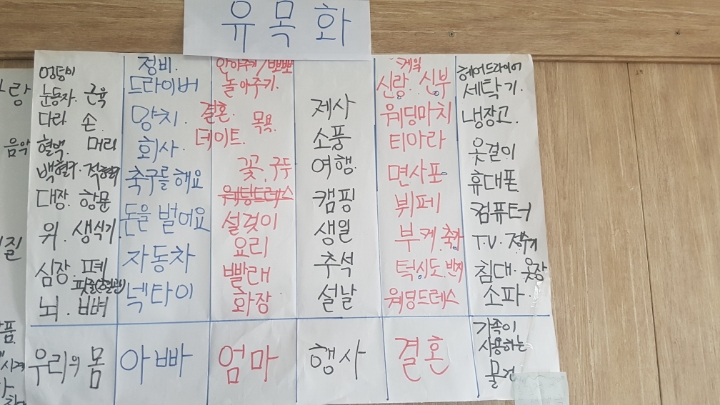 유목화
엉덩이
눈동자. 근육
다리 손
혈액. 머리
백혈구. 적혈구
대장. 항문
위. 생식기
심장. 폐
뇌. 뼈
우리의 몸
정비.
드라이버
망치.
회사.
축구를 해요
돈을 벌어요
자동차
넥타이
아빠
안아주기/뽀뽀
놀아주기.
결혼. 목욕
데이트.
꽃, 구두
웨딩드레스
설겆이
요리
빨래
화장
엄마
제사
소풍
여행.
캠핑
생일
추석
설날
행사
신랑. 신부
웨딩마치
티아라
면사포
뷔페
부케
턱시도
웨딩드레스
결혼
헤어드라이어
세탁기.
냉장고.
옷걸이
휴대폰
컴퓨터
T.V. 정수기
침대. 옷장
소파.
가족이
사용하는
물건
음악